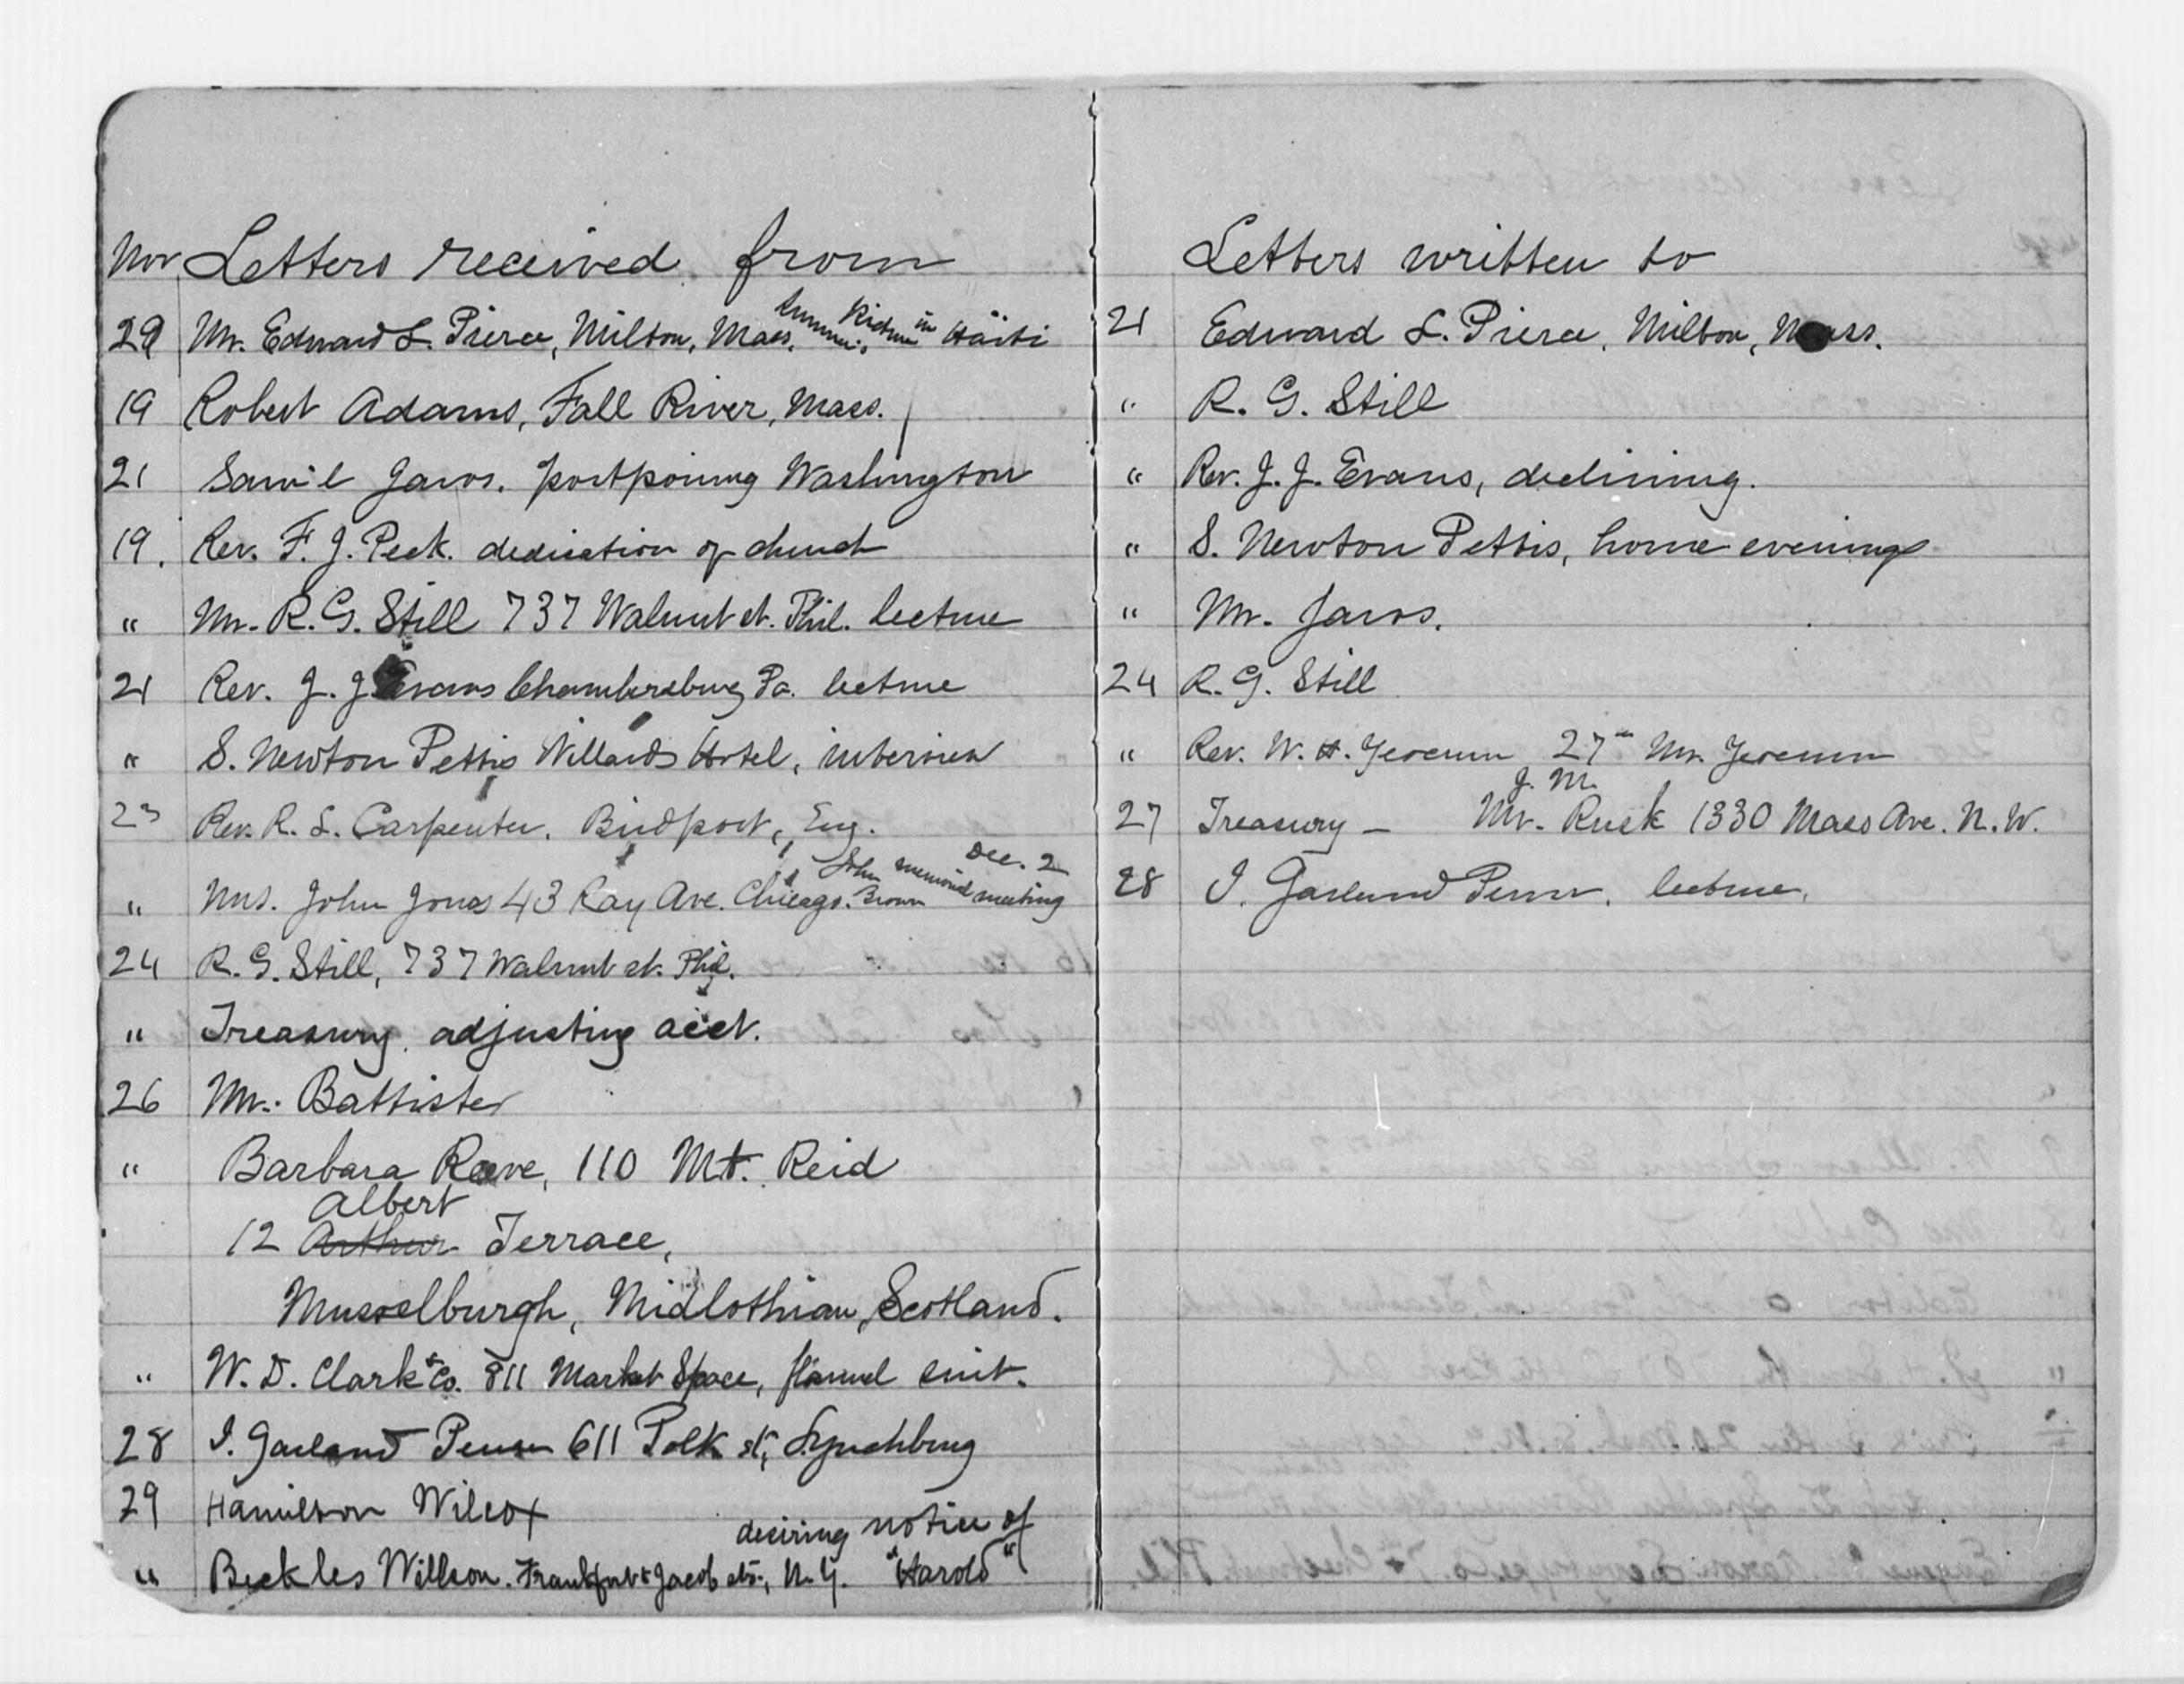 Nov Letters received from
29 Mr. Edward L. Pierce, Milton, Mass. Sumner's Picture in Haïti
19 Robert Adams, Fall River, Mass.
21 Sam'l Jaros. postponing Washington
19. Rev. F. J. Peck. dedication of church
" Mr. R. G. Still 737 Walnut st. Phil. lecture
21 Rev. J. J. Evans Chambersburg Pa. lecture
" S. Newton Pettis Willards Hotel, interview
23 Rev. R. L. Carpenter. Bridport, Eng.
" Mrs. John Jones 43 Ray Ave. Chicago. John Brown memorial meeting Dec. 2
24 R. G. Still, 737 Walnut st. Phil.
" Treasury, adjusting acct.
26 Mr. Battiste
" Barbara Reeve, 110 Mt. Reid
Albert
12 Arthur Terrace,
Musselburgh, Midlothian, Scotland.
" W. D. Clark & Co. 811 Market Space, flannel suit.
28 I. Garland Penn 611 Polk st, Lynchburg
29 Hamilton Wilcox
desiring notice of
" Beckles Willson. Frankfort & Jacob sts., N. Y. "Harold"
Letters written to
21 Edward L. Pierce, Milton, Mass.
" R. G. Still
" Rev. J. J. Evans, declining.
" S. Newton Pettis, home evenings
" Mr. Jaros.
24 R. G. Still
" Rev. W. H. 27th Mr.
J. M.
27 Treasury — Mr. Rusk 1330 Mass Ave. N. W.
28 I. Garland Penn, lecture.